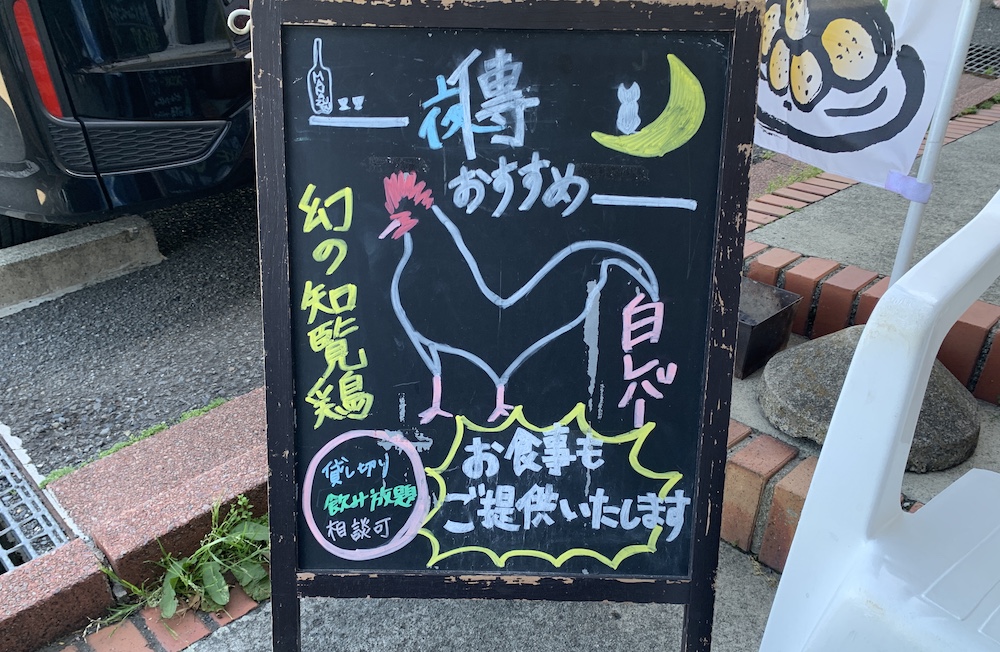 夜傳
おすすめ
幻の知覧鶏
白レバー
お食事も
ご提供いたします
貸し切り
飲み放題
相談可